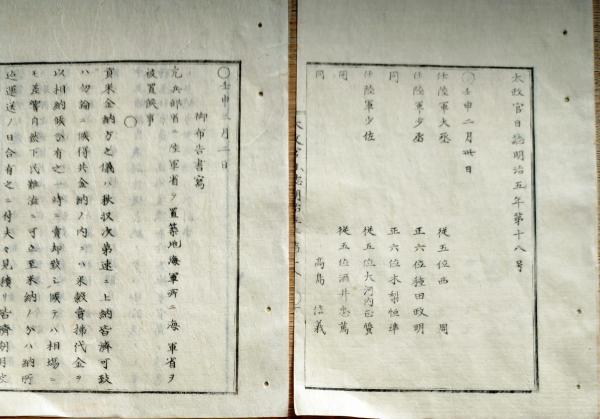 太政官日誌明治五年第十八号
〇壬申二月卅日
任陸軍大丞 従五位西 周
任陸軍少丞 正六位種田政明
同 正六位木梨恒準
任陸軍少佐 従五位大河内正質
同 従五位酒井忠篤
同 高島 信義
〇壬申三月二日
御布告書写
元兵部省ニ陸軍省ヲ置築地海軍所ニ海軍省ヲ
被置候事
〇
貢米金納方之儀ハ秋収次第速ニ上納皆済可致
ハ勿論ニ候得共金納ノ内ニハ米穀売払代金ヲ
以相納候分有之一時ニ売却致シ候テハ相場ニ
モ差響自然下民難渋ニ可立至米納ノ分ハ納所
迄運送ノ日合有之ニ付夫々見積リ皆済期月